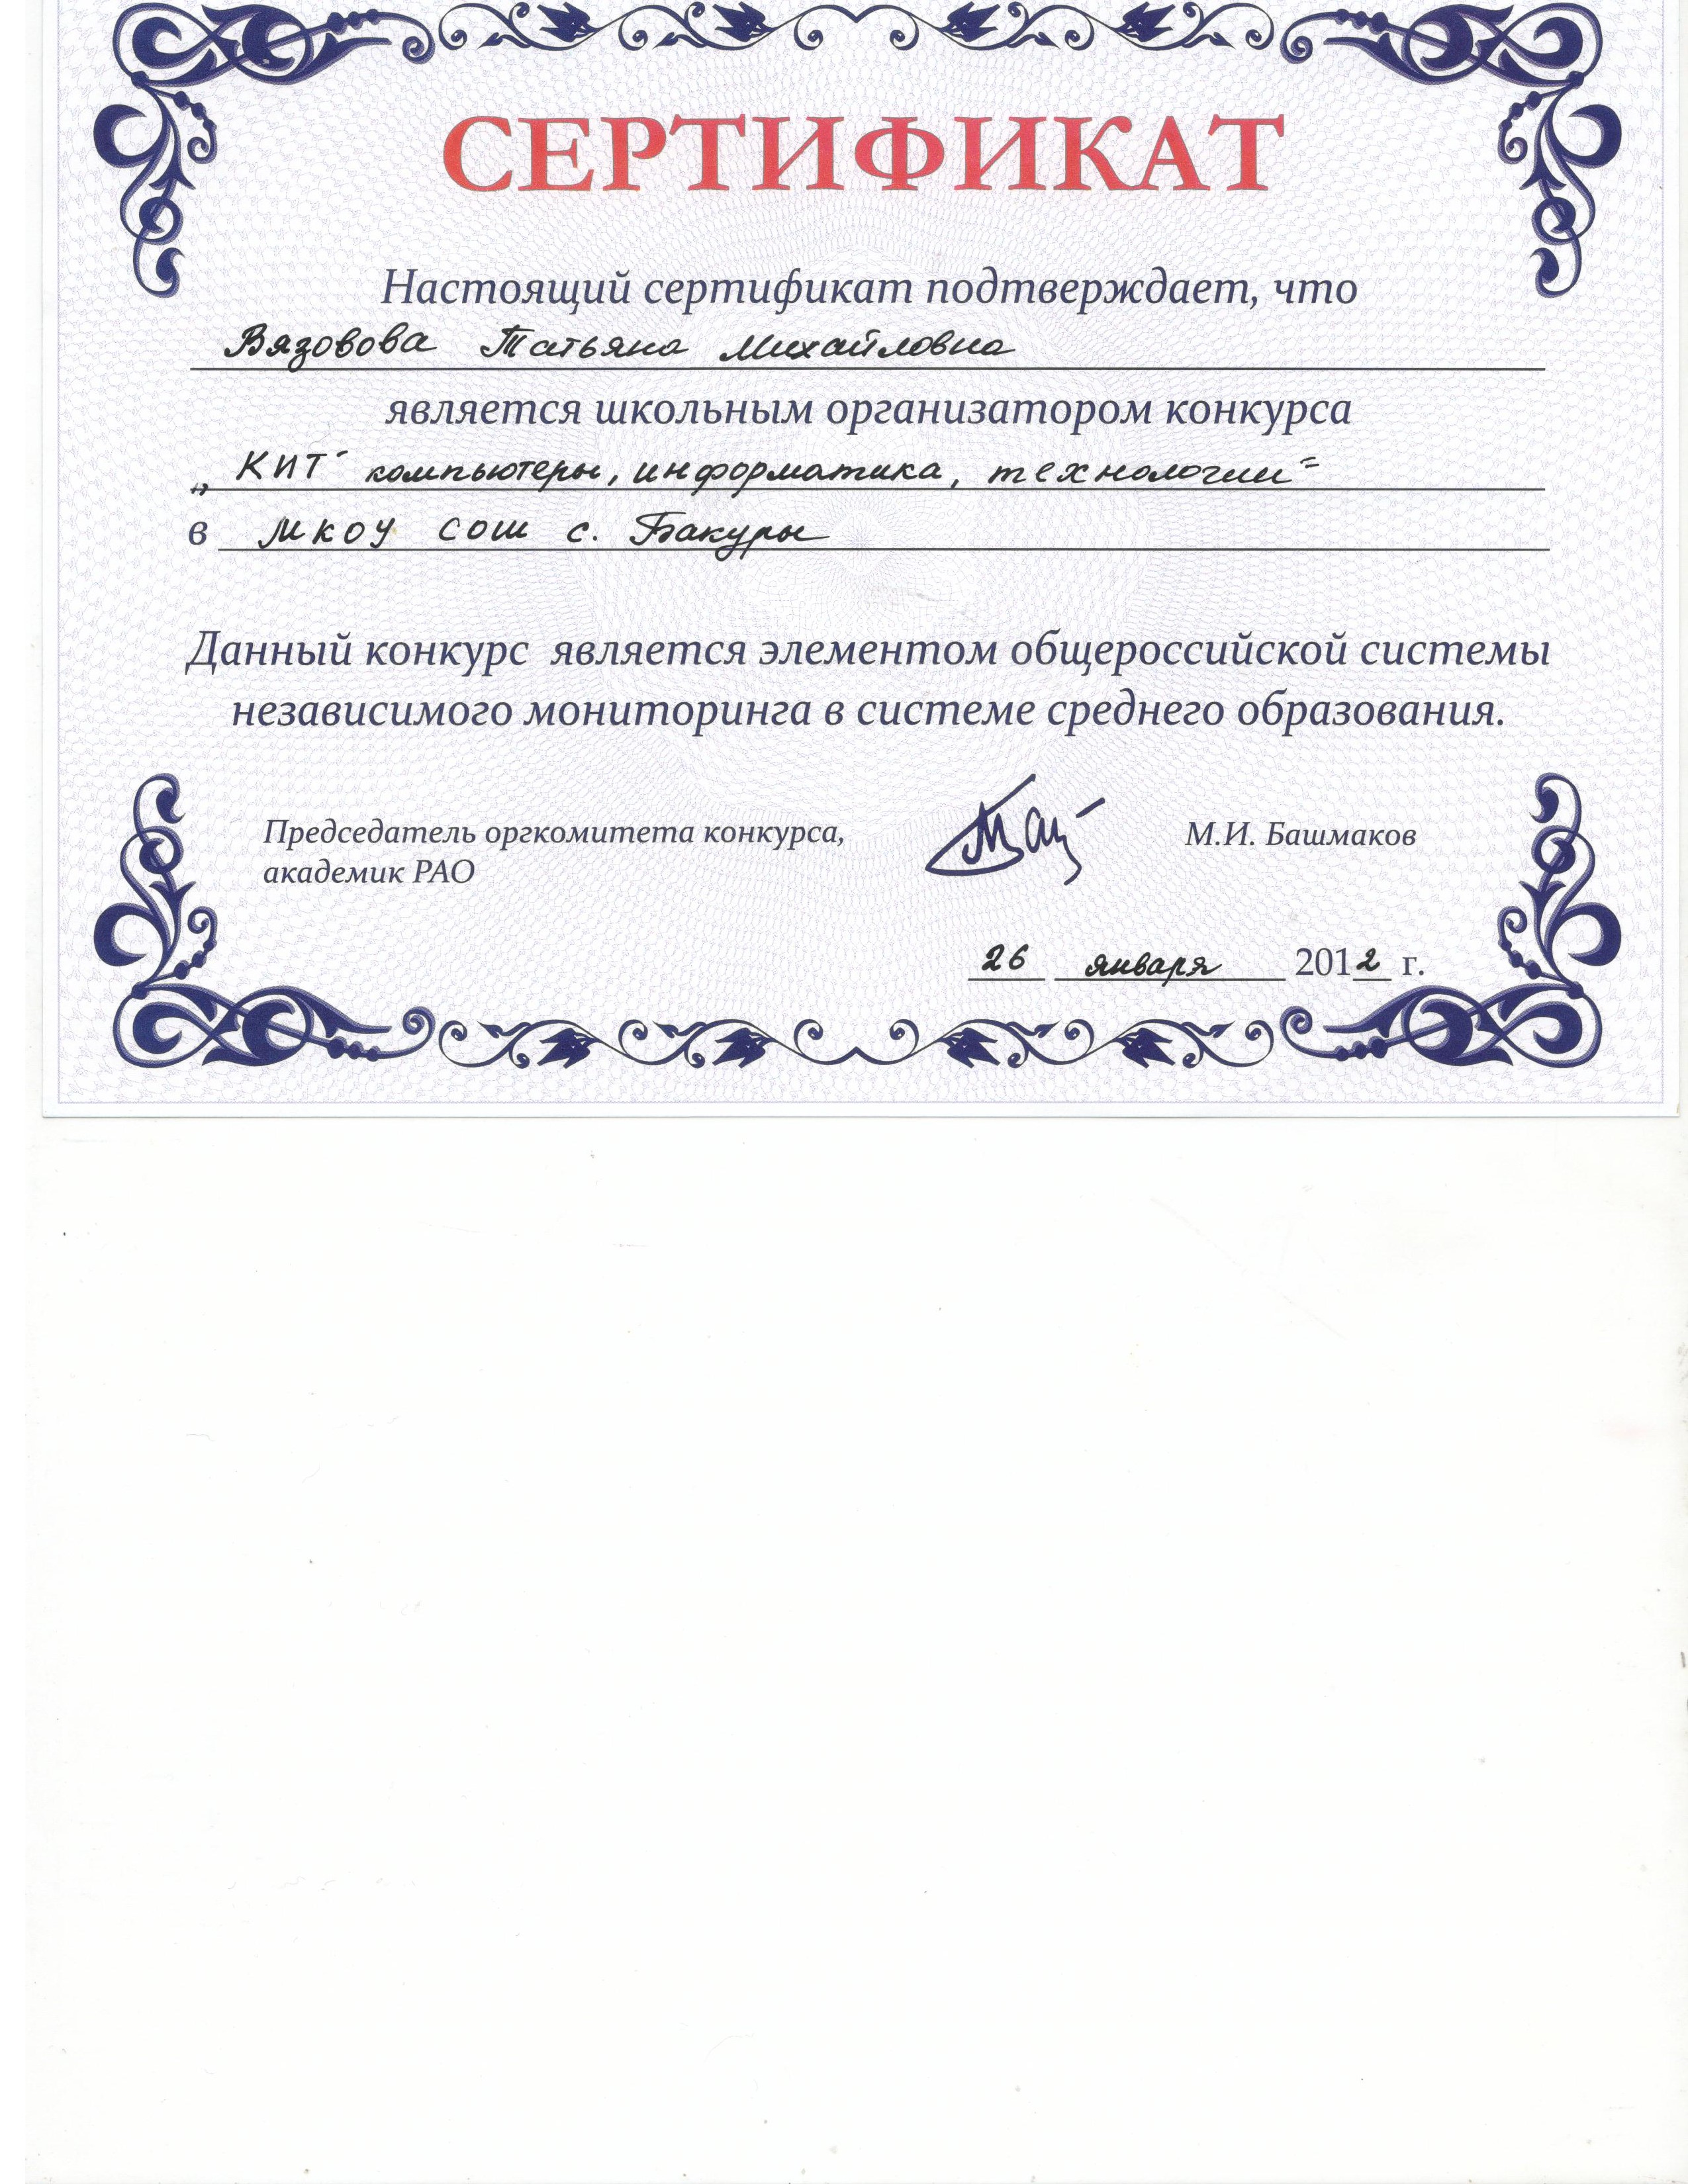 СЕРТИФИКАТ
Настоящий сертификат подтверждает, что
Вязовова Татьяна Михайловна
является школьным организатором конкурса
„КИТ" компьютеры, информатика, технологии"
в МКОУ СОШ с. Бакуры
Данный конкурс является элементом общероссийской системы
независимого мониторинга в системе среднего образования.
Председатель оргкомитета конкурса, М.И. Башмаков
академик РАО
26 января 2012 г.